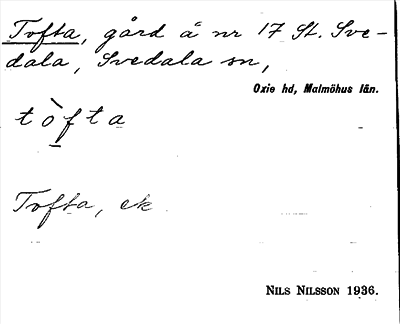 Tofta, gård å nr 17 St. Sve-
dala, Svedala sn,
Oxie hd, Malmöhus län.
tòfta
Tofta, ek
NILS NILSSON 1936.